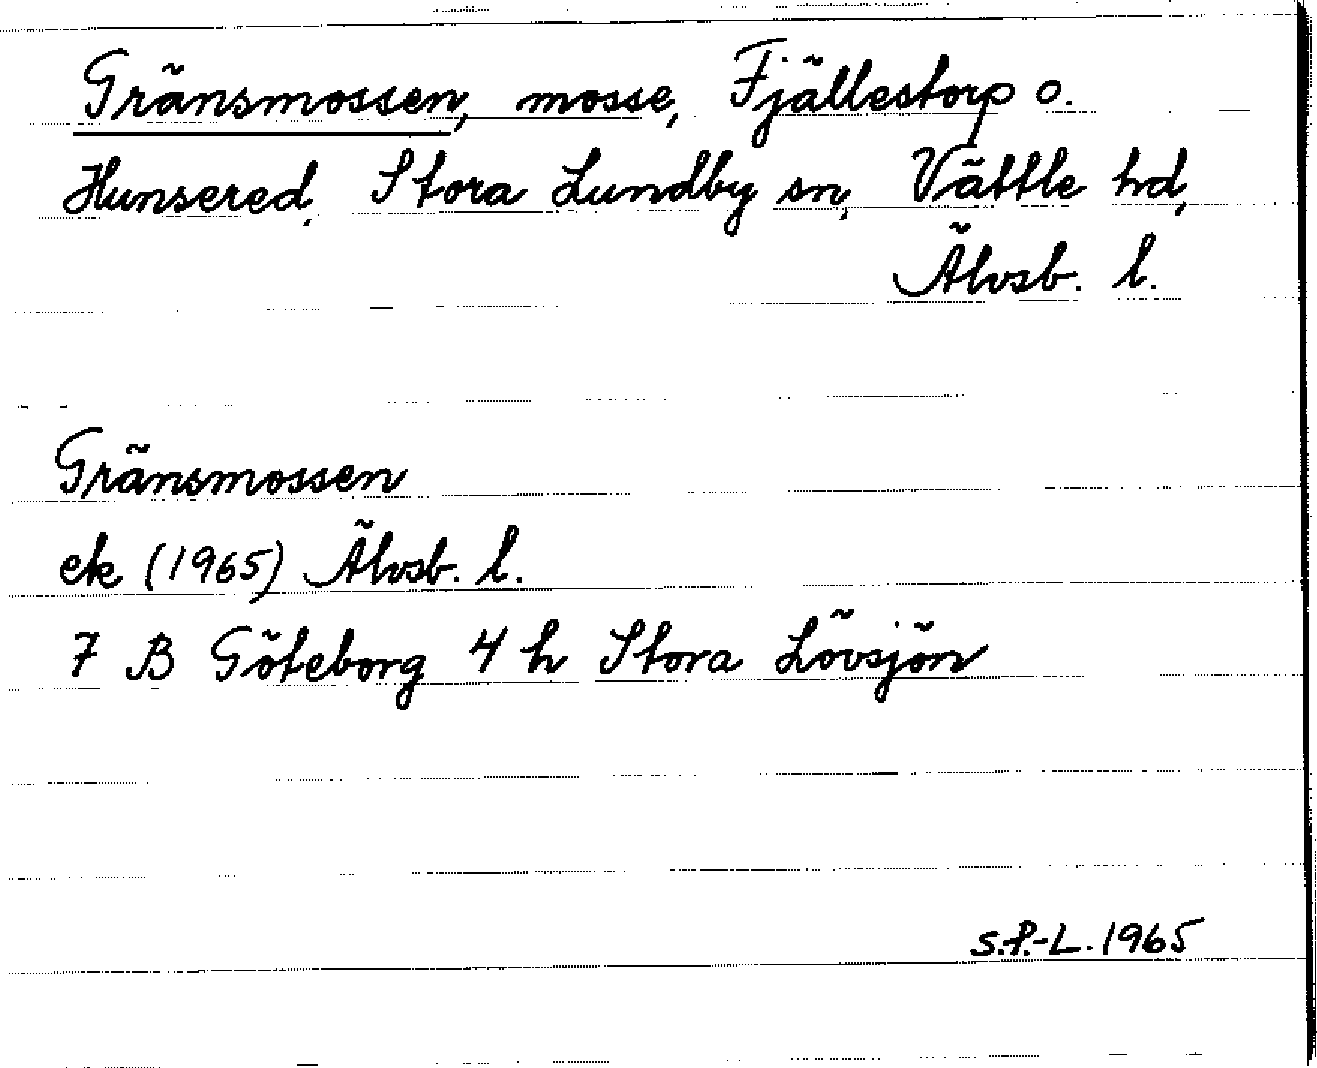 Gränsmossen, mosse, Fjällestorp o.
Hunsered, Stora Lundby sn, Vättle hd,
Älvsb. l.
Gränsmossen
ek (1965) Älvsb. l.
7 B Göteborg 4 h Stora Lövsjön
S.P.-L. 1965